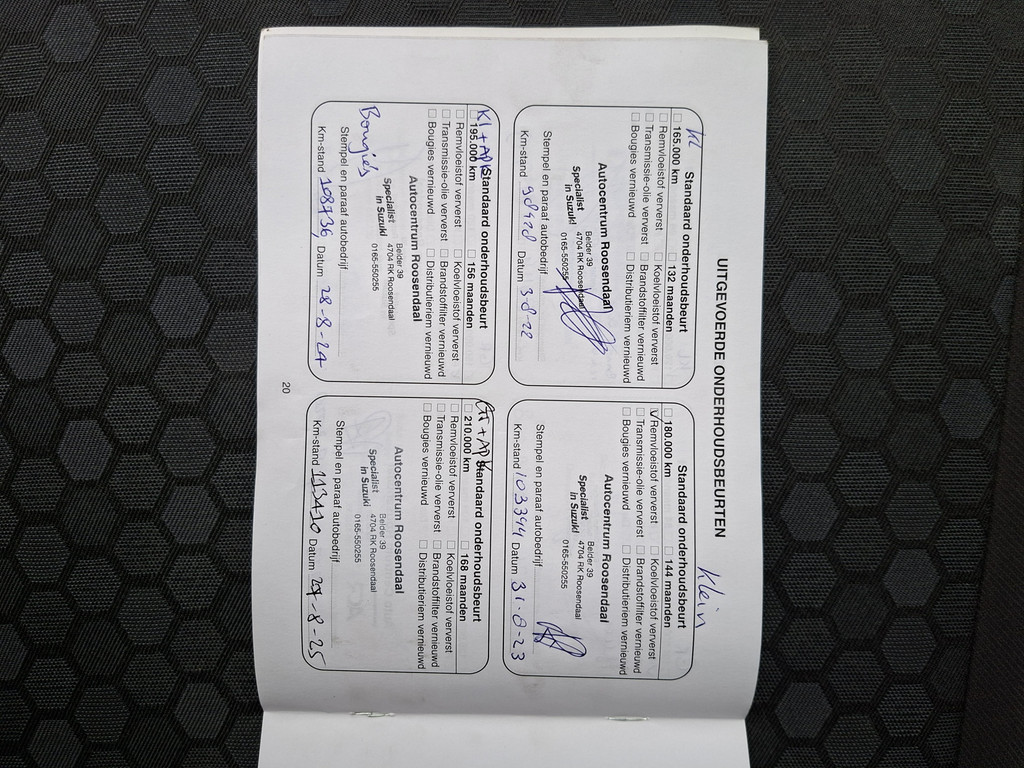 UITGEVOERDE ONDERHOUDSBEURTEN
KL
Standaard onderhoudsbeurt
165.000 km 132 maanden
Remvloeistof ververst Koelvloeistof ververst
Transmissie-olie ververst Brandstoffilter vernieuwd
Bougies vernieuwd Distributieriem vernieuwd
Autocentrum Roosendaal
Specialist in Suzuki
Belder 39
4704 RK Roosendaal
0165-550255
Stempel en paraaf autobedrijf
Km-stand Datum 3-8-22
Klein
Standaard onderhoudsbeurt
180.000 km 144 maanden
Remvloeistof ververst Koelvloeistof ververst
Transmissie-olie ververst Brandstoffilter vernieuwd
Bougies vernieuwd Distributieriem vernieuwd
Autocentrum Roosendaal
Specialist in Suzuki
Belder 39
4704 RK Roosendaal
0165-550255
Stempel en paraaf autobedrijf
Km-stand 103394 Datum 31-8-23
Kl + APK
Standaard onderhoudsbeurt
195.000 km 156 maanden
Remvloeistof ververst Koelvloeistof ververst
Transmissie-olie ververst Brandstoffilter vernieuwd
Bougies vernieuwd Distributieriem vernieuwd
Autocentrum Roosendaal
Specialist in Suzuki
Belder 39
4704 RK Roosendaal
0165-550255
Bougiés
Stempel en paraaf autobedrijf
Km-stand 108736, Datum 28-8-24
+ APK
Standaard onderhoudsbeurt
210.000 km 168 maanden
Remvloeistof ververst Koelvloeistof ververst
Transmissie-olie ververst Brandstoffilter vernieuwd
Bougies vernieuwd Distributieriem vernieuwd
Autocentrum Roosendaal
Specialist in Suzuki
Belder 39
4704 RK Roosendaal
0165-550255
Stempel en paraaf autobedrijf
Km-stand 113410 Datum 29-8-25
20